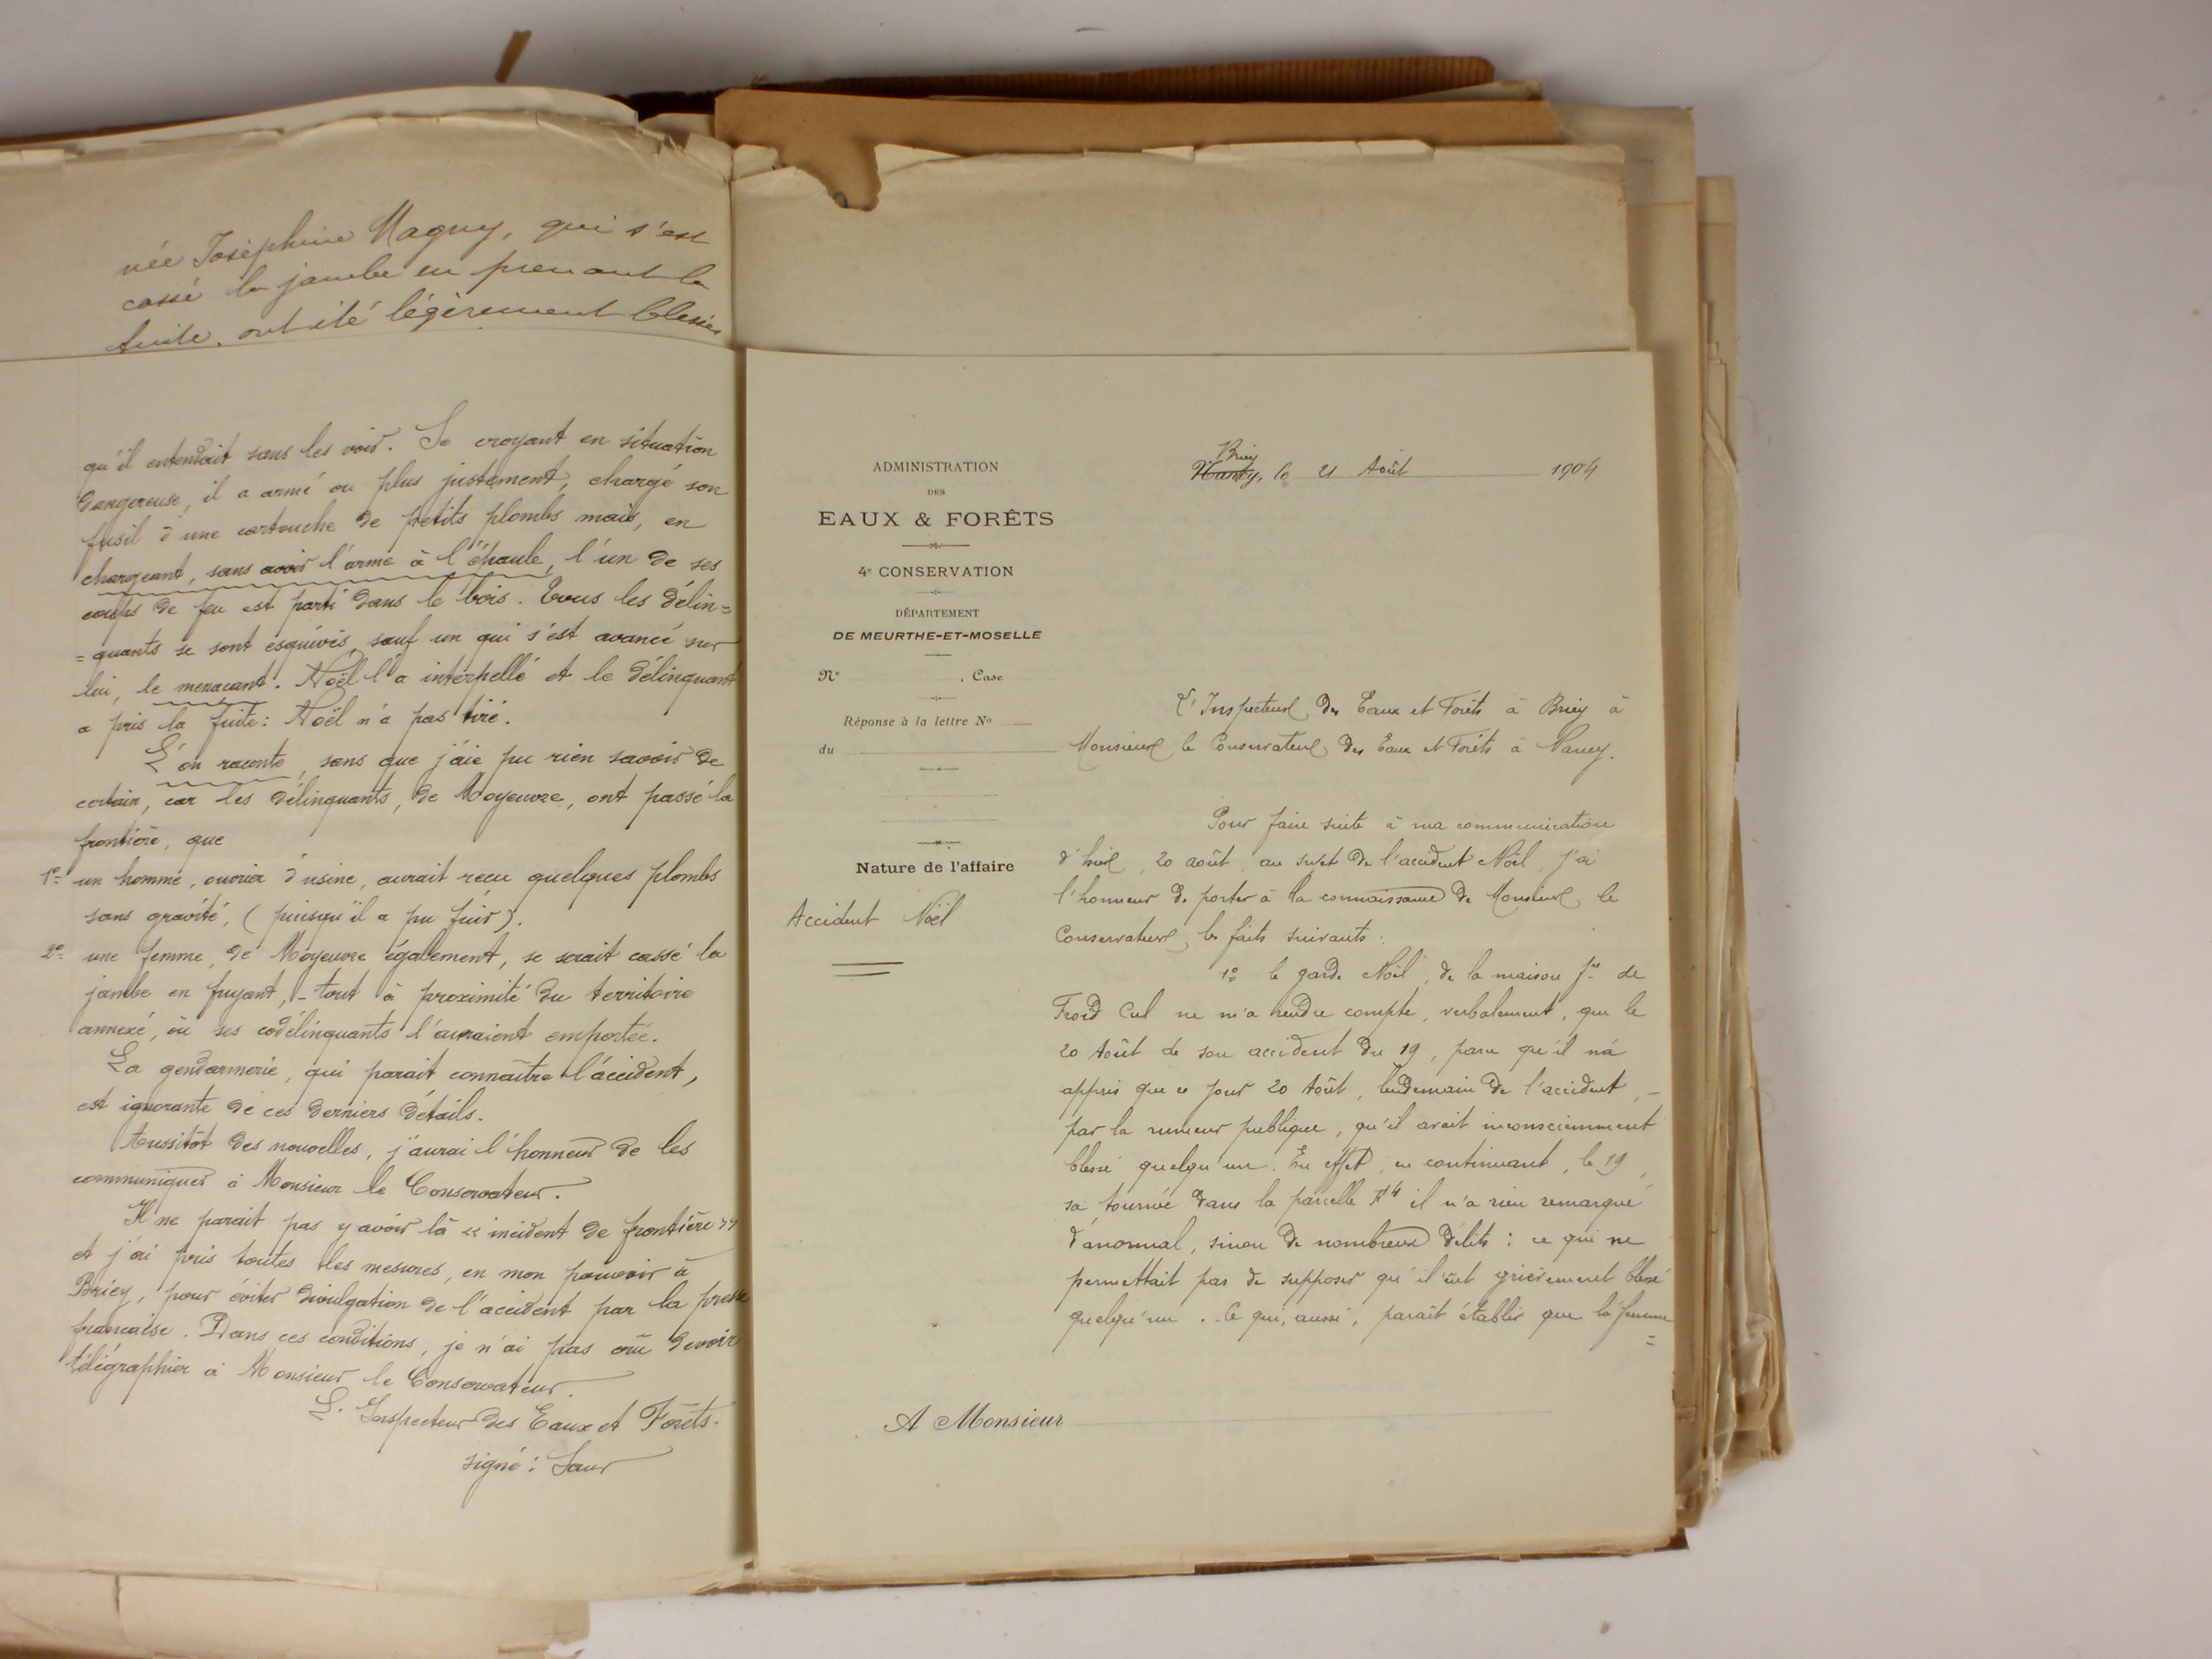 née Joséphine Magny, qui s'est
cassé la jambe en prenant la
fuite, ont été légèrement blessés
qu'il entendait sans les voir. Se croyant en situation
dangereuse, il a armé ou plus justement, chargé son
fusil d'une cartouche de petits plombs mais, en
chargeant, sans avoir l'arme à l'épaule, l'un de ses
coups de feu est parti dans le bois. Tous les délin=
=quants se sont esquivés, sauf un qui s'est avancé sur
lui, le menaçant. Noël l'a interpellé et le délinquant
a pris la fuite: Noël n'a pas tiré.
L'on raconte, sans que j'aie pu rien savoir de
certain, car les délinquants, de Moyeuvre, ont passé la
frontière, que
1º= un homme, ouvrier d'usine, aurait reçu quelques plombs
sans gravité, (puisqu'il a pu fuir).
2º= une femme, de Moyeuvre également, se serait cassé la
jambe en fuyant, - tout à proximité du territoire
annexé, où ses codélinquants l'auraient emportée.
La gendarmerie, qui parait connaître l'accident,
est ignorante de ces derniers détails.
Aussitôt des nouvelles, j'aurai l'honneur de les
communiquer à Monsieur le Conservateur.
Il ne parait pas y avoir là « incident de frontière »
et j'ai pris toutes les mesures, en mon pouvoir à
Briey, pour éviter divulgation de l'accident par la presse
française. Dans ces conditions, je n'ai pas crû devoir
télégraphier à Monsieur le Conservateur.
L'Inspecteur des Eaux et Forêts.
signé:
ADMINISTRATION
DES
EAUX & FORÊTS
4e CONSERVATION
DÉPARTEMENT
DE MEURTHE-ET-MOSELLE
No , Case
Réponse à la lettre No
du
Nature de l'affaire
Accident Noël
Briey
Nancy, le 21 Août 1904
L'Inspecteur des Eaux et Forêts à Briey à
Monsieur le Conservateur des Eaux et Forêts à Nancy.
Pour faire suite à ma communication
d'hier, 20 août, au sujet de l'accident Noël, j'ai
l'honneur de porter à la connaissance de Monsieur le
Conservateur, les faits suivants:
1º le garde Noël, de la maison fre de
Froid Cul ne m'a rendu compte, verbalement, que le
20 Août de son accident du 19, parce qu'il n'a
appris que ce jour 20 Août, lendemain de l'accident, -
par la rumeur publique, qu'il avait inconsciemment
blessé quelqu'un. En effet, en continuant, le 19,
sa tournée dans la parcelle F4 il n'a rien remarqué
d'anormal, sinon de nombreux délits: ce qui ne
permettait pas de supposer qu'il eût grièvement blessé
quelqu'un. Ce qui, aussi, paraît établir que la femme
=
A Monsieur